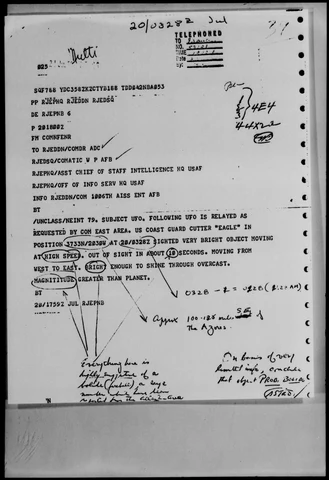 20/0328Z Jul
TELEPHONED
TO
025
SGF788 YDC358ZXZCTYB188 TDD042NBA053
PP RJEPNQ RJEDDN RJEDSQ
DE RJEPNB 6
P 201800Z
FM COMNFENR
TO RJEDDN/COMDR ADC
RJEDSQ/COMATIC W P AFB
RJEPHQ/ASST CHIEF OF STAFF INTELLIGENCE HQ USAF
RJEPHQ/OFF OF INFO SERV HQ USAF
INFO RJEDDN/COM 1006TH AISS ENT AFB
BT
4E4
44X2
/UNCLASS/HEINT 79. SUBJECT UFO. FOLLOWING UFO IS RELAYED AS
REQUESTED BY COM EAST AREA. US COAST GUARD CUTTER "EAGLE" IN
POSITION 3733N/2030W AT 20/0328Z SIGHTED VERY BRIGHT OBJECT MOVING
AT HIGH SPEED. OUT OF SIGHT IN ABOUT 10 SECONDS. MOVING FROM
WEST TO EAST. BRIGHT ENOUGH TO SHINE THROUGH OVERCAST.
MAGNITITUDE GREATER THAN PLANET.
BT
20/1759Z JUL RJEPNB
Approx 100-125 miles SE of
The Azores
Everything here is
highly suggestive of a
bolide
On basis of very
limited info, conclude
that object PROB. BOLIDE
(ASTRO)